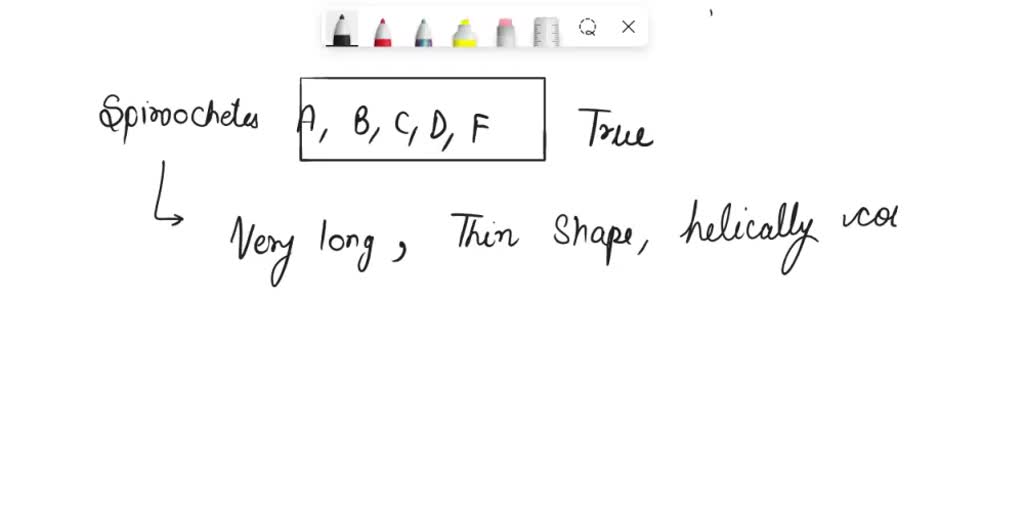 Spirochetes A, B, C, D, F True
Very long, Thin Shape, helically coi